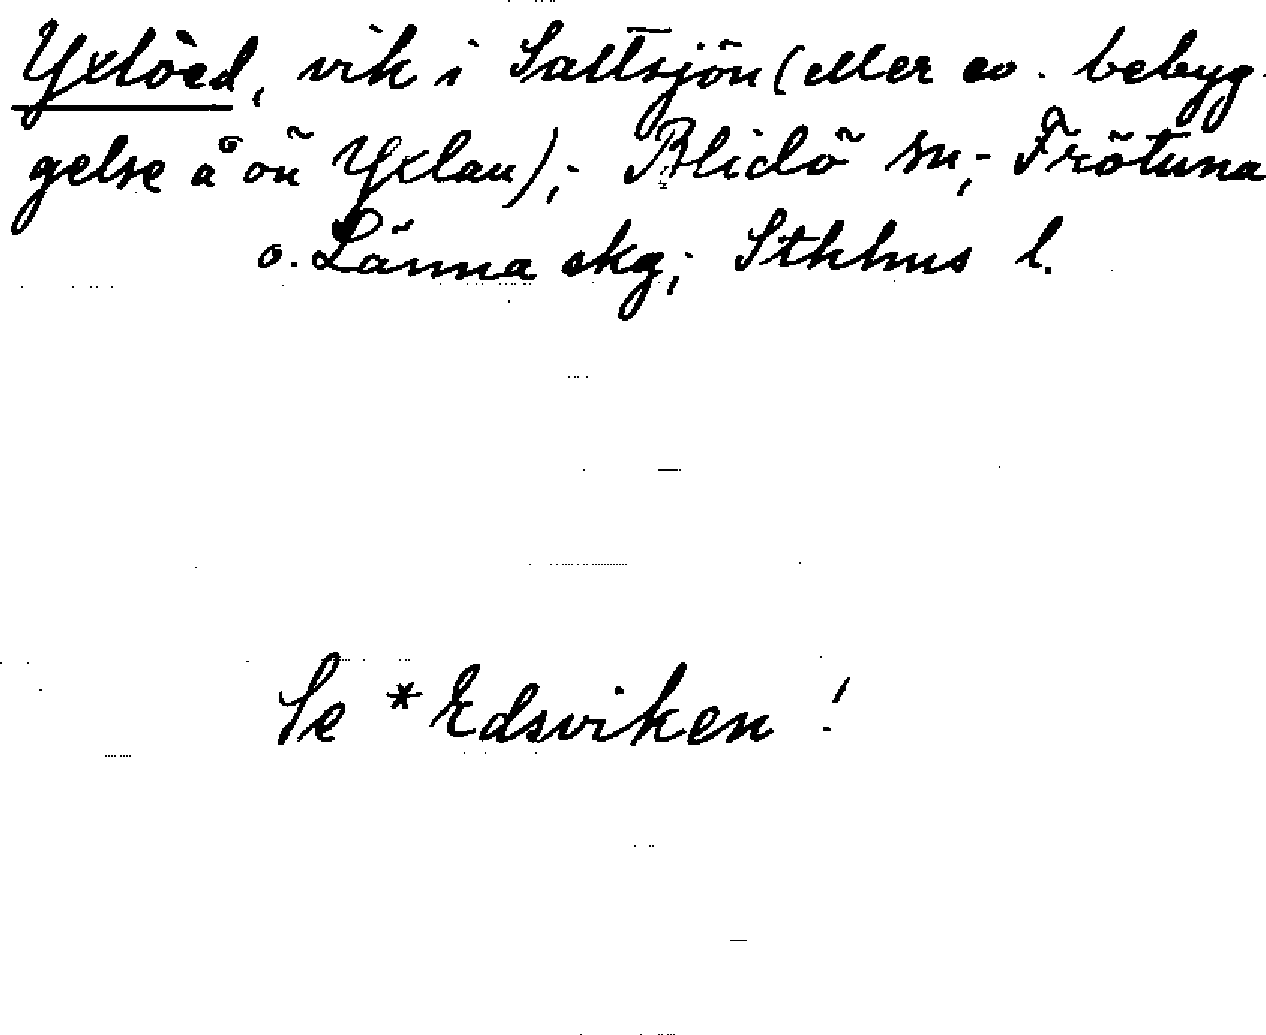 Yxlöed, vik i Saltsjön (eller ev. bebyg-
gelse å ön Yxlan); Blidö sn; Frötuna
o. Länna skg; Sthlms l.
Se *Edsviken!